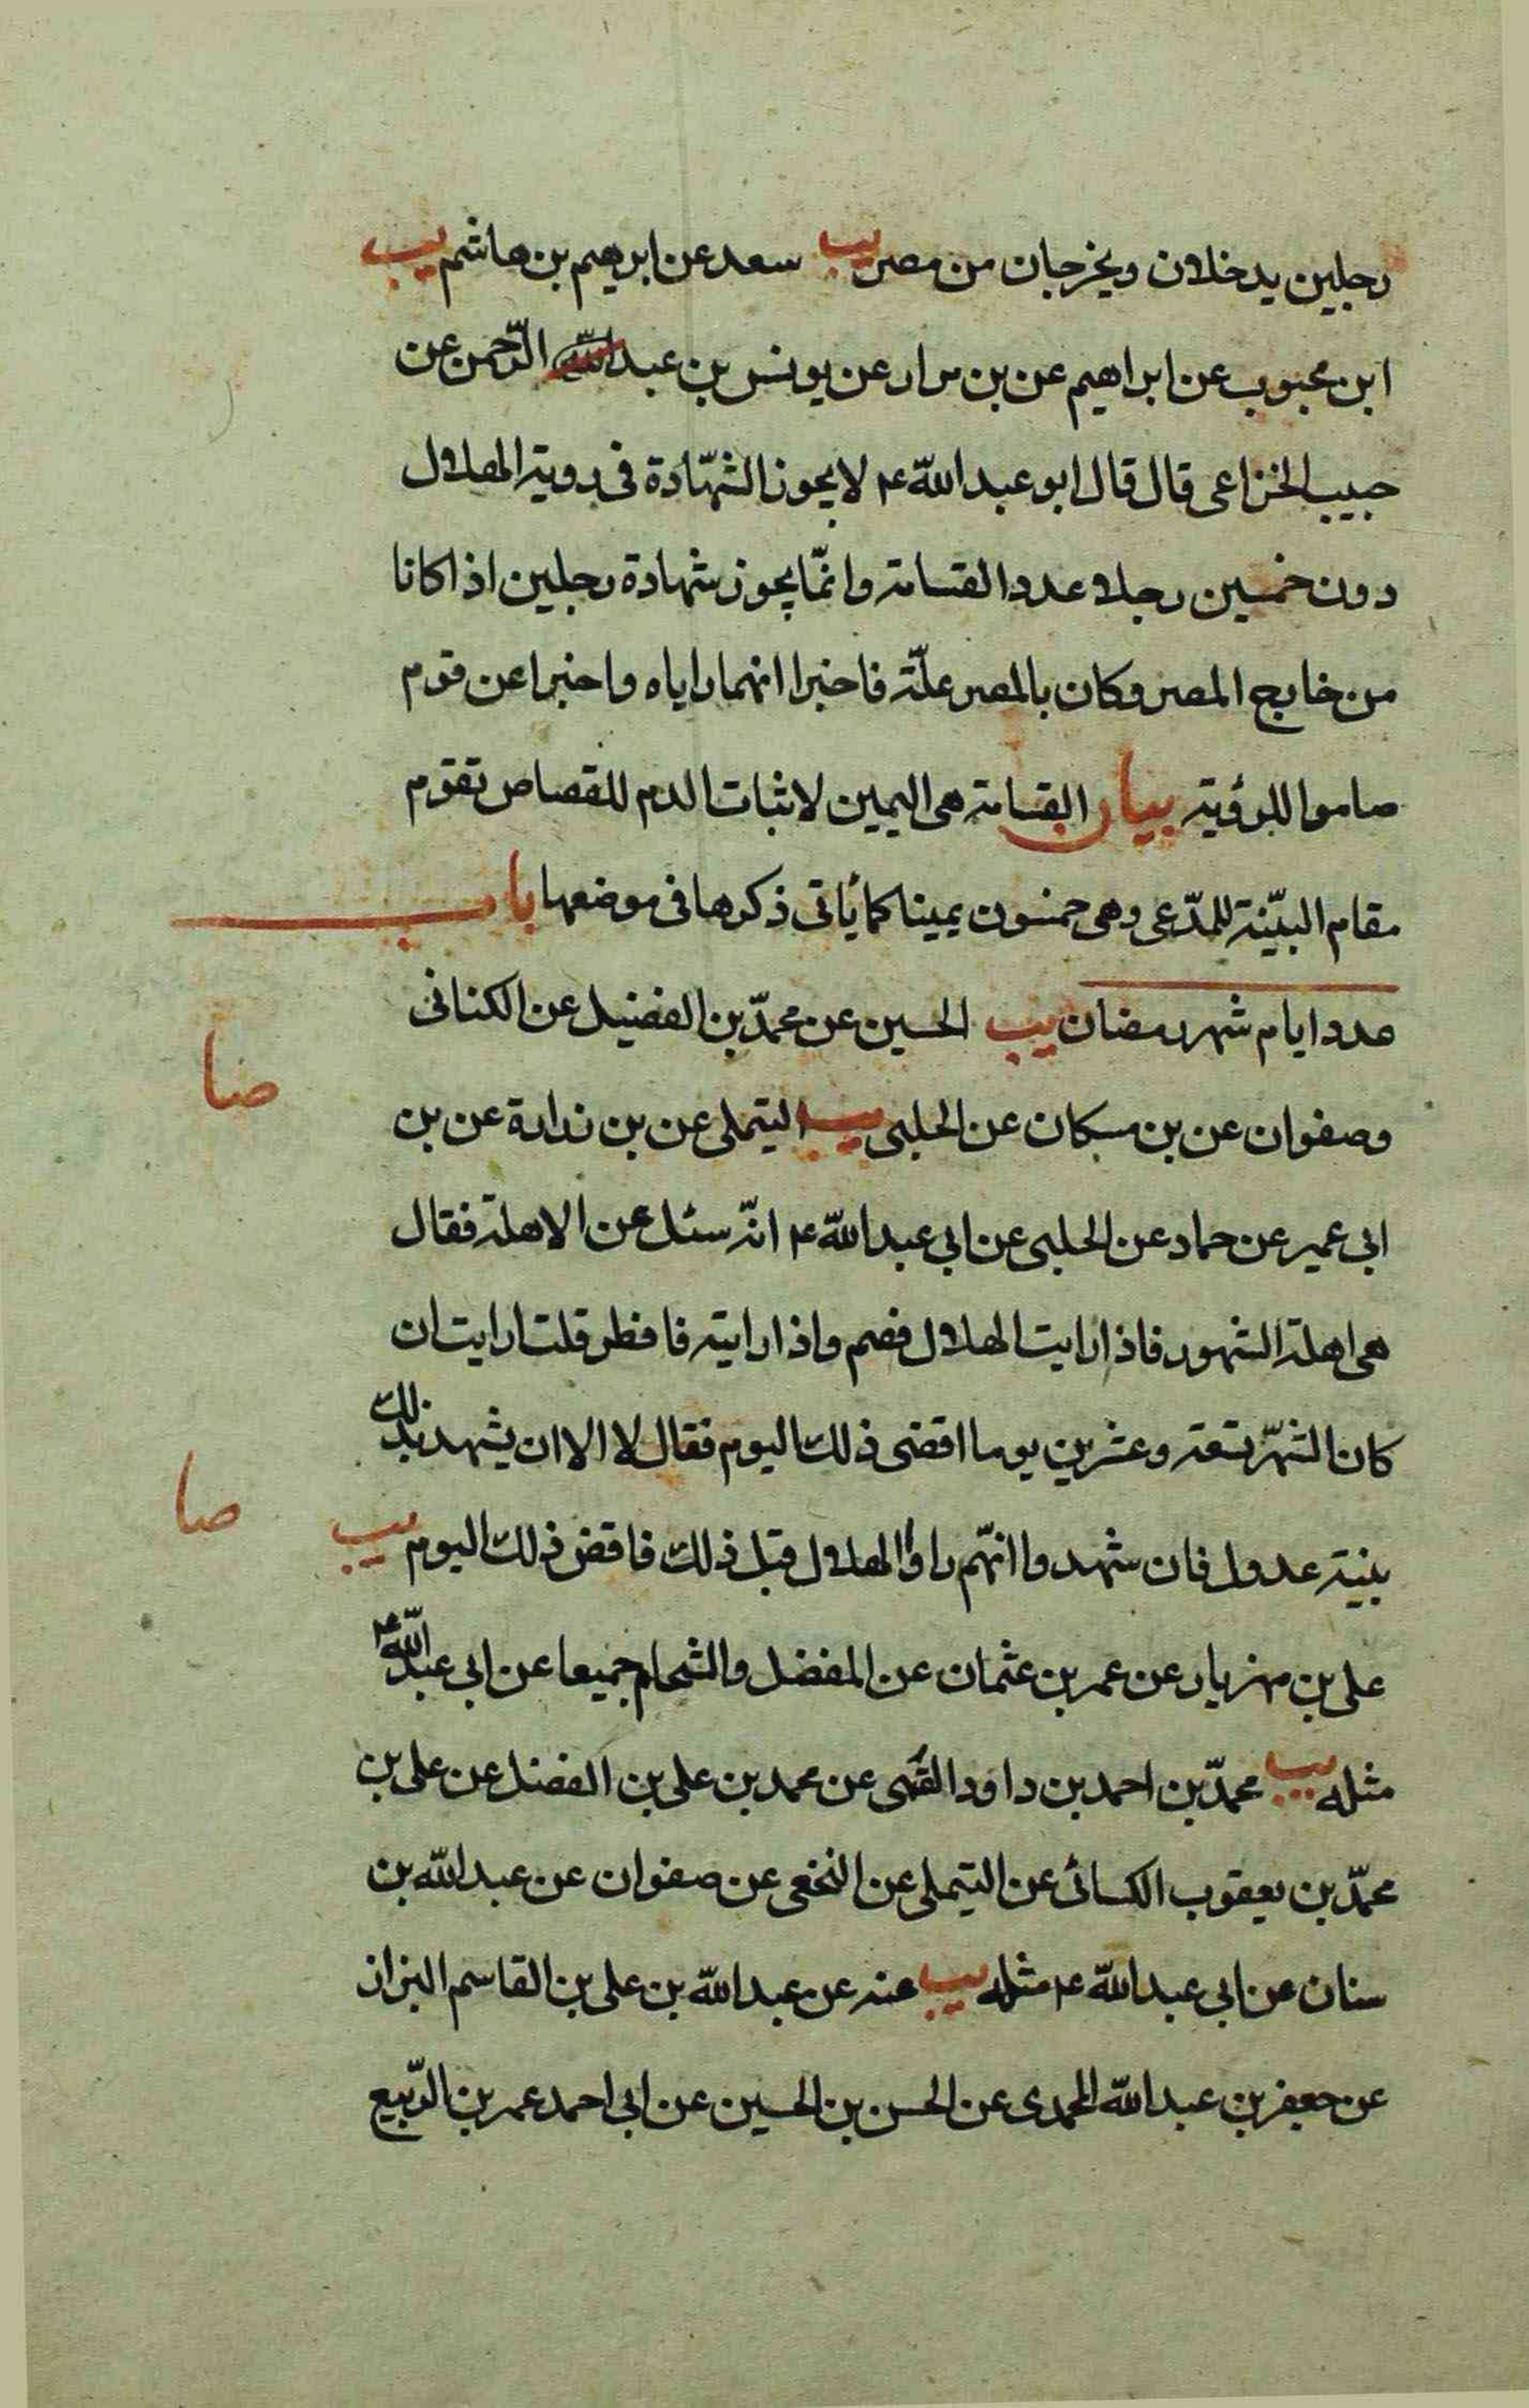 رجلين يدخلان ويخرجان من مصر يب سعد عن ابرهيم بن هاشم يب
ابن محبوب عن ابراهيم عن بن مرار عن يونس بن عبد الله الرّحمن عن
حبيب الخزاعى قال قال ابو عبد الله ع لا يجوز الشّهادة فى روية الهلال
دون خمسين رجلا عدد القسامة وانّما يجوز شهادة رجلين اذا كانا
من خارج المصر وكان بالمصر علّة فاخبرا انهما راياه واخبرا عن قوم
صاموا للرؤية بيان القسامة هى اليمين لاثبات الدم للقصاص تقوم
مقام البيّنة للمدّعى وهى خمسون يمينا كما يأتى ذكرها فى موضعها باب
عدد ايام شهر رمضان يب الحسين عن محمّد بن الفضيل عن الكنانى
صا
وصفوان عن بن مسكان عن الحلبى يب التيملى عن بن زرارة عن بن
ابى عمير عن حماد عن الحلبى عن ابى عبد الله ع انّه سئل عن الاهلة فقال
هى اهلة الشهور فاذا رايت الهلال فصم واذا رايته فافطر قلت ارايت ان
كان الشّهر تسعة وعشرين يوما اقضى ذلك اليوم فقال لا الا ان يشهد بذلك
صا
بينة عدول فان شهدوا انهّم راوا الهلال قبل ذلك فاقض ذلك اليوم يب
على بن مهزيار عن عمر بن عثمان عن المفضل والشحام جميعا عن ابى عبد الله ع
مثله يب محمّد بن احمد بن داود القمى عن محمد بن على بن الفضل عن على بن
محمّد بن يعقوب الكسائى عن التيملى عن النخعى عن صفوان عن عبد الله بن
سنان عن ابى عبد الله ع مثله يب عنه عن عبد الله بن على بن القاسم البزاز
عن جعفر بن عبد الله المحمدى عن الحسن بن الحسين عن ابى احمد عمر بن الرّبيع